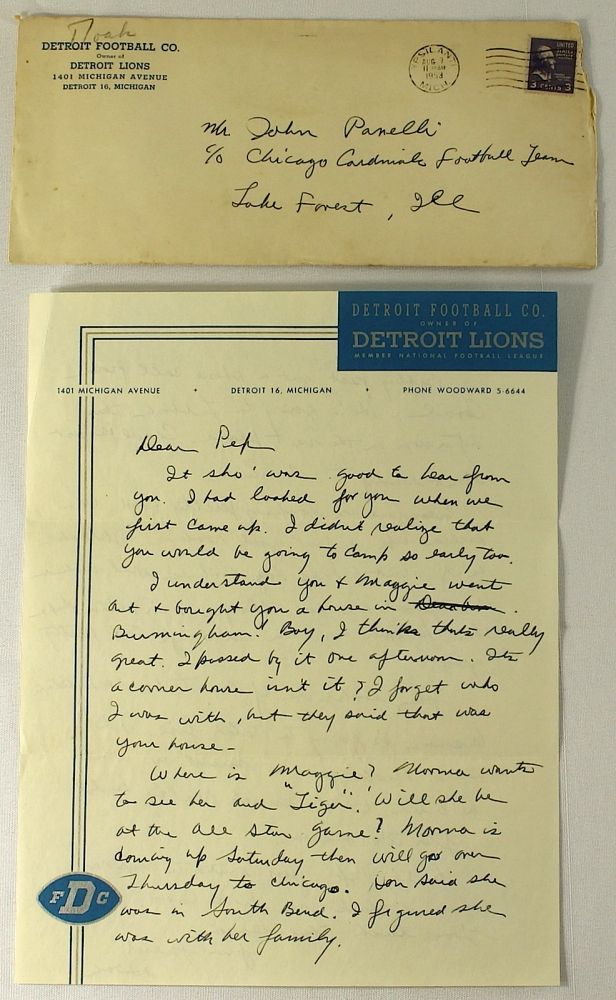 Doak
DETROIT FOOTBALL CO.
Owner of
DETROIT LIONS
1401 MICHIGAN AVENUE
DETROIT 16, MICHIGAN
YPSILANTI
AUG 7
1953
MICH.
UNITED
STATES
3 CENTS 3
Mr John Panelli
c/o Chicago Cardinals Football Team
Lake Forest, Ill
DETROIT FOOTBALL CO.
OWNER OF
DETROIT LIONS
MEMBER NATIONAL FOOTBALL LEAGUE
1401 MICHIGAN AVENUE + DETROIT 16, MICHIGAN + PHONE WOODWARD 5-6644
Dear Pep
It sho' was good to hear from
you. I had looked for you when we
first came up. I didn't realize that
you would be going to camp so early too.
I understand you & Maggie went
out & bought you a house in Dearborn.
Burmingham! Boy, I thinks thats really
great. I passed by it one afternoon. Its
a corner house isn't it? I forget who
I was with, but they said that was
your house-
Where is Maggie? Norma wants
to see her and "Tiger". Will she be
at the All Star game? Norma is
coming up Saturday then will go over
Thursday to Chicago. Don said she
was in South Bend. I figured she
was with her family.
F D C